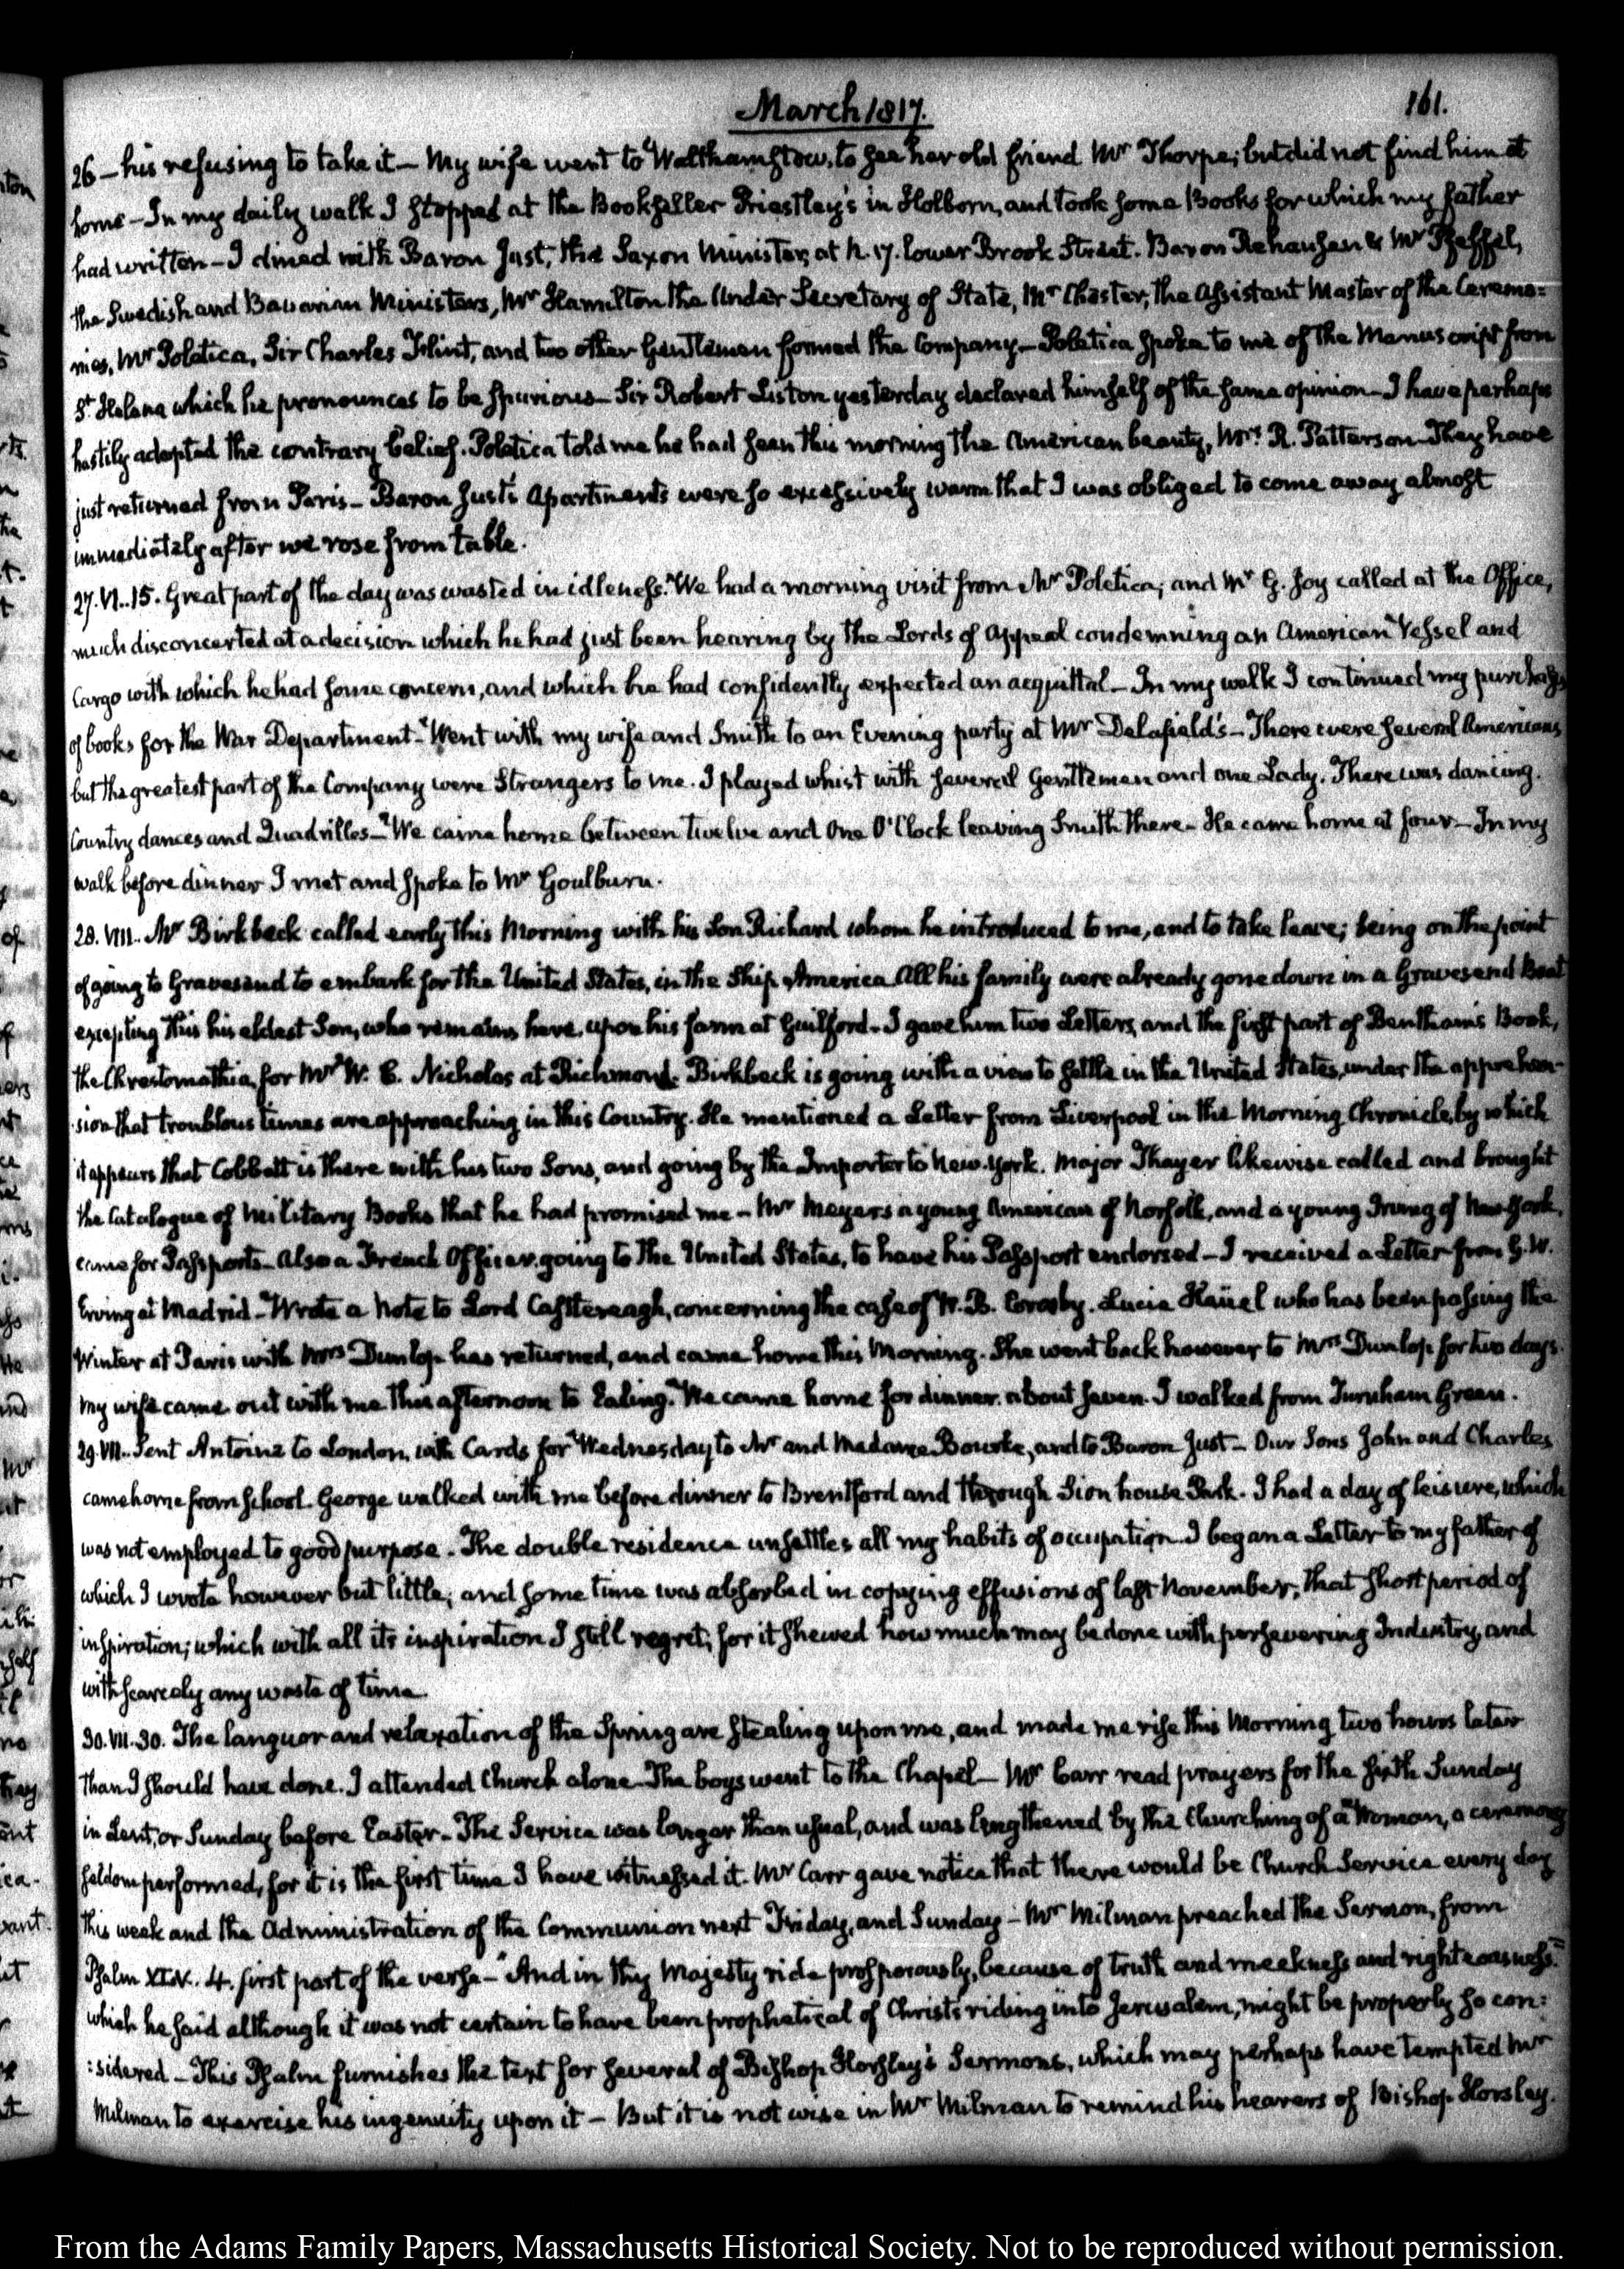 March 1817.
161.
26 — his refusing to take it — My wife went to Walthamstow, to see her old friend Mr Thorpe; but did not find him at
home — In my daily walk I stopped at the Bookseller Priestley's in Holborn, and took some Books for which my father
had written — I dined with Baron Just, the Saxon Minister, at N. 17. lower Brook Street. Baron Rehausen & Mr Pfeffel,
the Swedish and Bavarian Ministers, Mr Hamilton the Under Secretary of State, Mr Chester, the Assistant Master of the Ceremo=
nies, Mr Poletica, Sir Charles Flint, and two other Gentlemen formed the Company — Poletica spoke to me of the Manuscript from
St Helena which he pronounces to be spurious — Sir Robert Liston yesterday declared himself of the same opinion — I have perhaps
hastily adopted the contrary belief. Poletica told me he had seen this morning the American beauty, Mrs R. Patterson — They have
just returned from Paris — Baron Just's Apartments were so excessively warm that I was obliged to come away almost
immediately after we rose from table.
27. VI..15. Great part of the day was wasted in idleness. We had a morning visit from Mr Poletica; and Mr G. Joy called at the Office,
much disconcerted at a decision which he had just been hearing by the Lords of Appeal condemning an American Vessel and
Cargo with which he had some concern, and which he had confidently expected an acquittal — In my walk I continued my purchases
of books for the War Department — Went with my wife and Smith to an Evening party at Mr Delafield's — There were several Americans
but the greatest part of the Company were Strangers to me. I played whist with several Gentlemen and one Lady. There was dancing.
Country dances and Quadrilles — We came home between twelve and One O'Clock leaving Smith there — He came home at four — In my
walk before dinner I met and spoke to Mr Goulburn.
28. VIII.. Mr Birkbeck called early this Morning with his Son Richard whom he introduced to me, and to take leave; being on the point
of going to Gravesend to embark for the United States, in the Ship America All his family were already gone down in a Gravesend Boat
excepting this his eldest Son, who remains here, upon his farm at Guilford — I gave him two Letters, and the first part of Bentham's Book,
the Chrestomathia, for Mr W. C. Nicholas at Richmond. Birkbeck is going with a view to settle in the United States, under the apprehen-
sion that troublous times are approaching in this Country. He mentioned a Letter from Liverpool in the Morning Chronicle, by which
it appears that Cobbett is there with his two Sons, and going by the Importer to New-York. Major Thayer likewise called and brought
the Catalogue of Military Books that he had promised me — Mr Meyers a young American of Norfolk, and a young Irving of New-York,
came for Passports — Also a French Officer going to the United States, to have his Passport endorsed — I received a Letter from G. W.
Erving at Madrid — Wrote a Note to Lord Castlereagh, concerning the case of W. B. Crosby. Lucia Haüel who has been passing the
Winter at Paris with Mrs Dunlop has returned, and came home this Morning. She went back however to Mrs Dunlop for two days.
My wife came out with me this afternoon to Ealing. We came home for dinner about seven. I walked from Turnham Green.
29. VII.. Sent Antoine to London, with Cards for Wednesday to Mr and Madame Bourke, and to Baron Just — Our Sons John and Charles
came home from School. George walked with me before dinner to Brentford and through Sion house Park. I had a day of leisure, which
was not employed to good purpose. The double residence unsettles all my habits of occupation. I began a Letter to my father of
which I wrote however but little; and some time was absorbed in copying effusions of last November, that short period of
inspiration; which with all its inspiration I still regret; for it shewed how much may be done with persevering Industry, and
with scarcely any waste of time.
30. VII. 30. The languor and relaxation of the Spring are stealing upon me, and made me rise this Morning two hours later
than I should have done. I attended Church alone — The boys went to the Chapel — Mr Carr read prayers for the sixth Sunday
in Lent, or Sunday before Easter — The Service was longer than usual, and was lengthened by the Churching of a Woman, a ceremony
seldom performed, for it is the first time I have witnessed it. Mr Carr gave notice that there would be Church Service every day
this week and the Administration of the Communion next Friday, and Sunday — Mr Milman preached the Sermon, from
Psalm XLV. 4. first part of the verse — "And in thy Majesty ride prosperously, because of truth and meekness and righteousness."
which he said although it was not certain to have been prophetical of Christ's riding into Jerusalem, might be properly so con:
:sidered — This Psalm furnishes the text for several of Bishop Horsley's Sermons, which may perhaps have tempted Mr
Milman to exercise his ingenuity upon it — But it is not wise in Mr Milman to remind his hearers of Bishop Horsley.
From the Adams Family Papers, Massachusetts Historical Society. Not to be reproduced without permission.